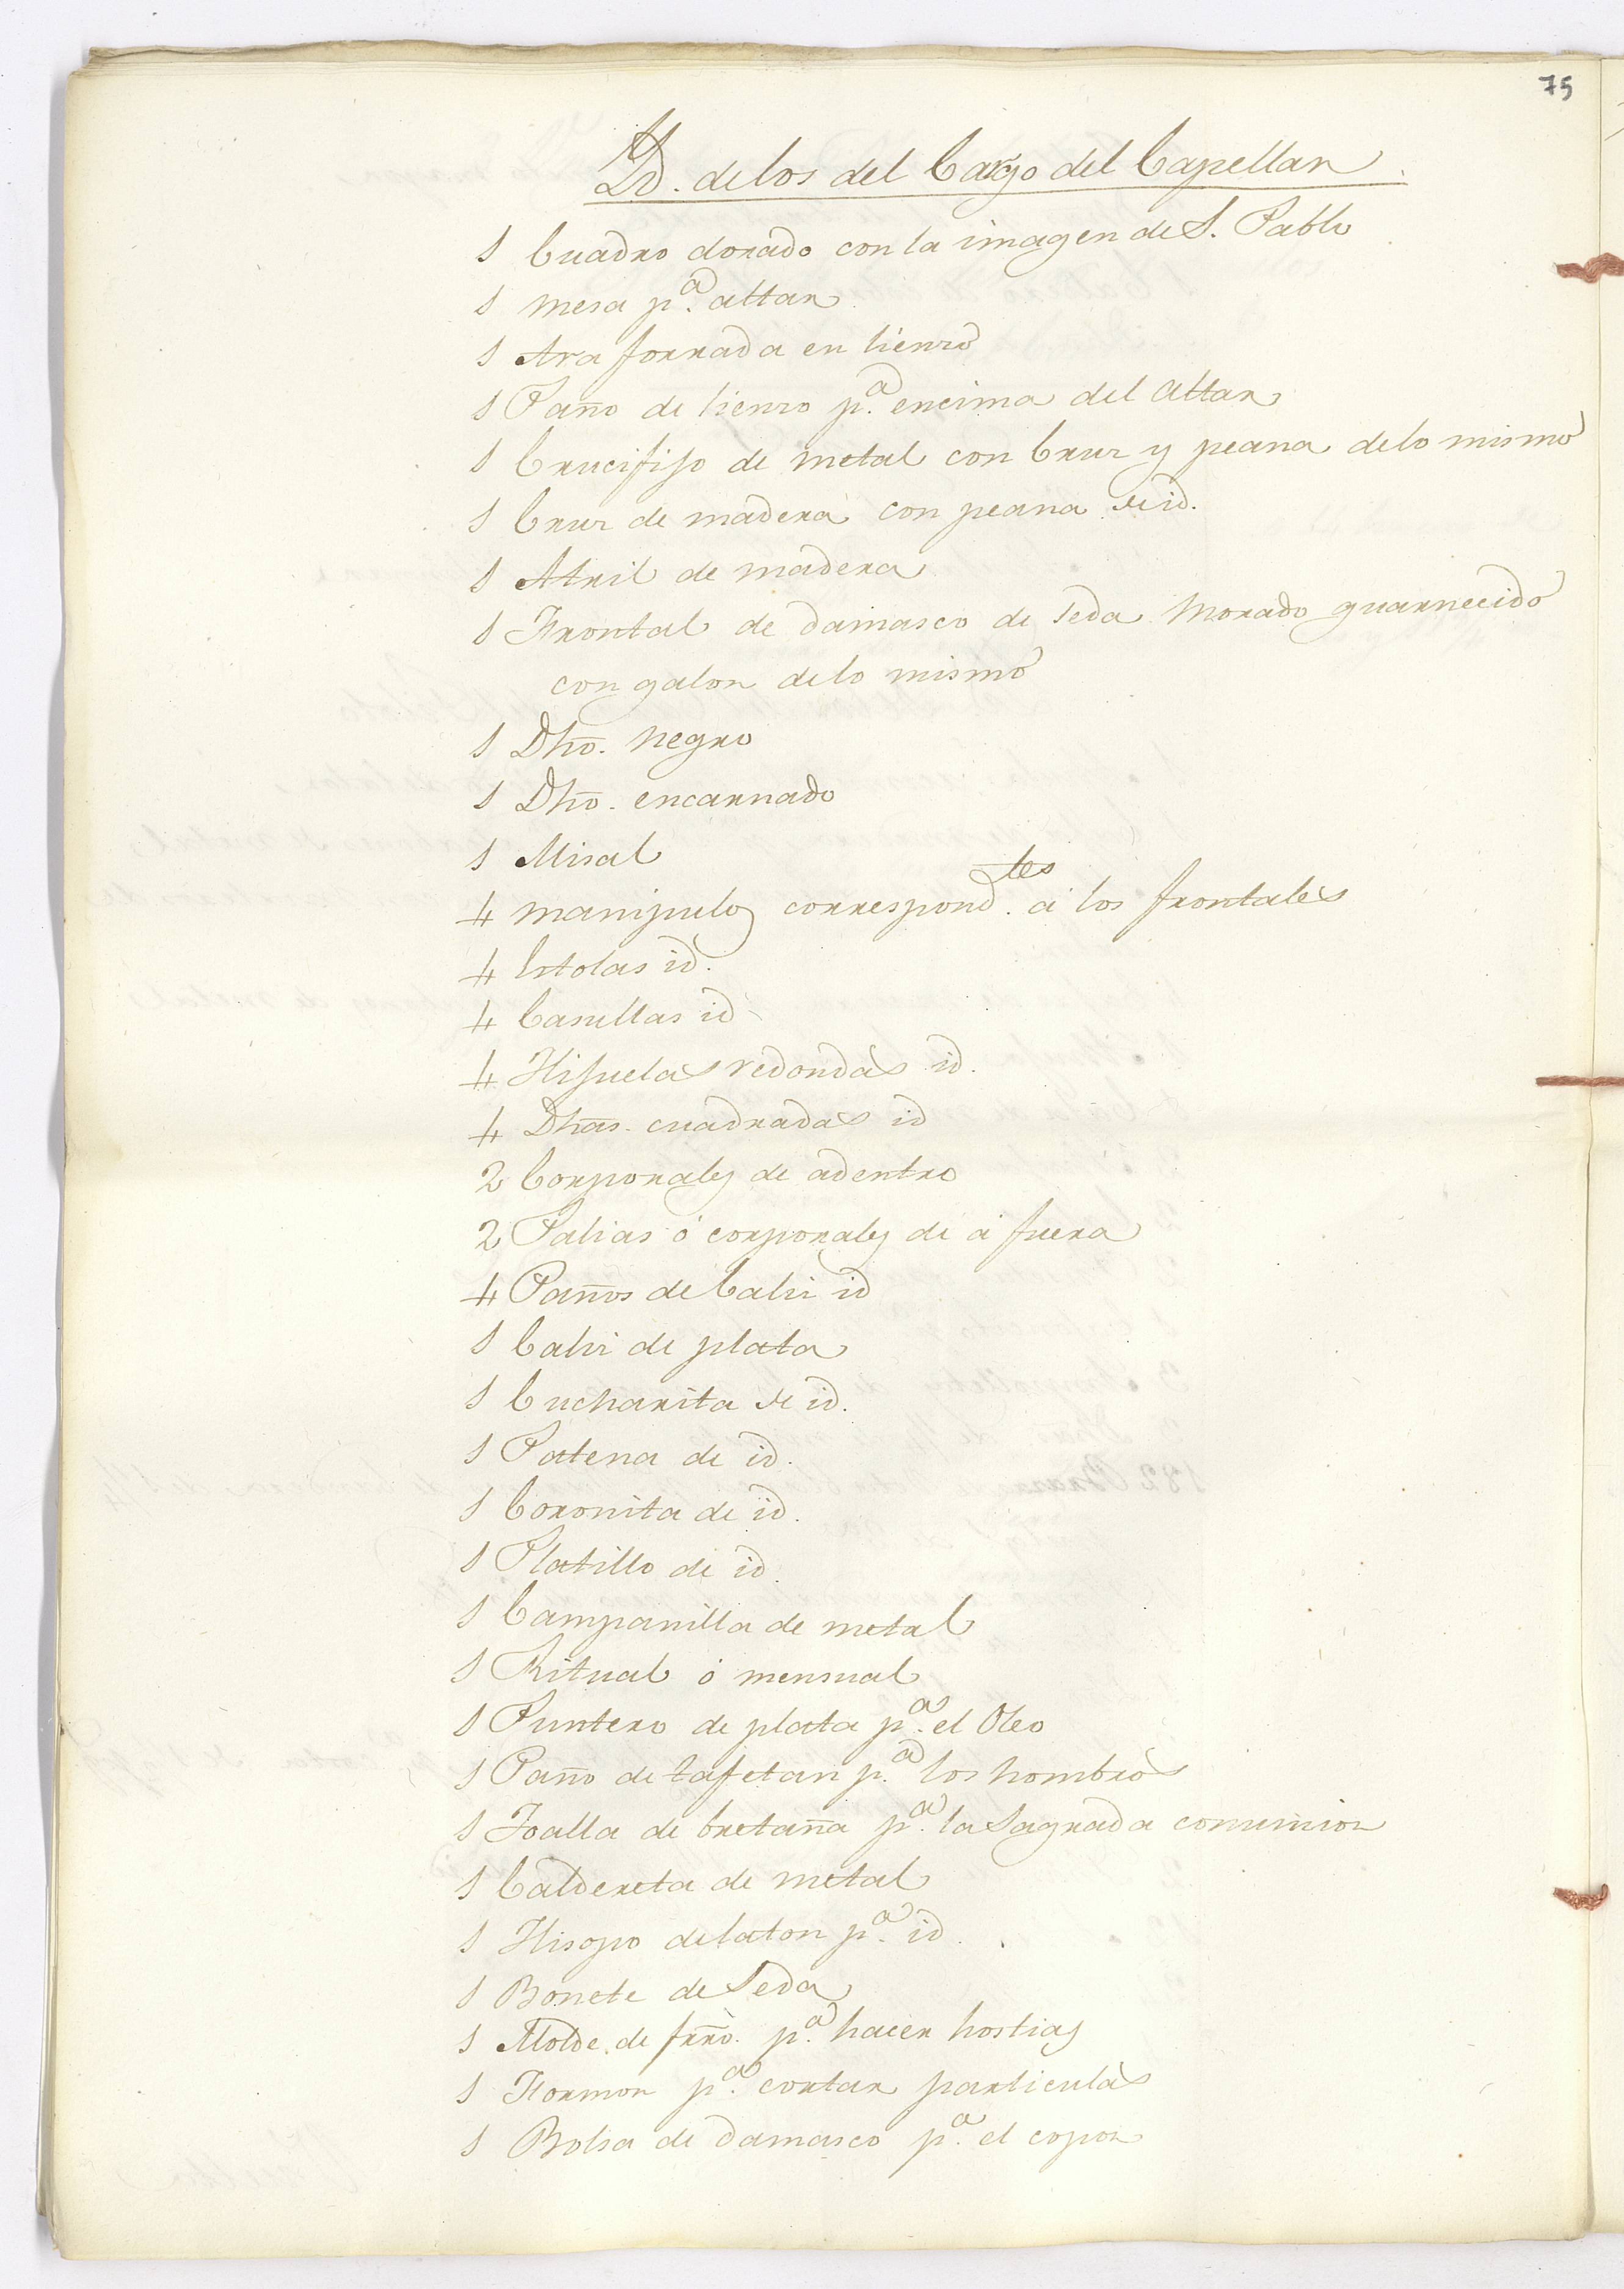 75
Id. de los del Cargo del Capellan
1 Cuadro dorado con la imagen de S. Pablo
1 mesa p.ª altar
1 Ara forrada en lienzo
1 Paño de lienzo p.ª encima del altar
1 Crucifijo de metal con Cruz y peana de lo mismo
1 Cruz de madera con peana de id.
1 Atril de madera
1 Frontal de damasco de seda morado guarnecido
con galon de lo mismo
1 Dho. negro
1 Dho. encarnado
1 Misal
4 manipulos correspond.tes á los frontales
4 Estolas id.
4 Casullas id
4 Hijuelas redondas id.
4 Dhas. cuadradas id
2 Corporales de adentro
2 Palias ó corporales de á fuera
4 Paños de Caliz id
1 Caliz de plata
1 Cucharita de id.
1 Patena de id.
1 Coronita de id.
1 Platillo de id.
1 Campanilla de metal
1 Ritual ó mensual
1 Puntero de plata p.ª el Oleo
1 Paño de tafetan p.ª los hombros
1 Toalla de bretaña p.ª la Sagrada comunion
1 Caldereta de metal
1 Hisopo de laton p.ª id.
1 Bonete de Seda
1 Molde de frro. p.ª hacer hostias
1 Hormon p.ª cortar particulas
1 Bolsa de damasco p.ª el copon